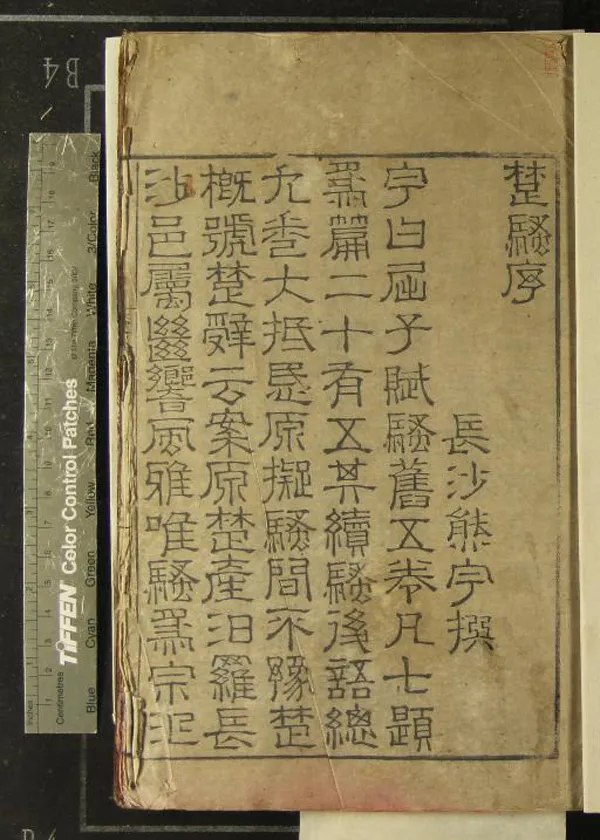 楚騷序
長沙熊宇撰
宇曰屈子賦騷舊五卷凡七題
爲篇二十有五其續騷後語總
九卷大抵原擬騷間不豫楚
概號楚辭云案原楚產汨羅長
沙邑屬㡭響風雅唯騷爲宗
B4
TIFFEN Color Control Patches
© The Tiffen Company, 2007
Blue Cyan Green Yellow Red Magenta White 3/Color Black
Inches
Centimetres